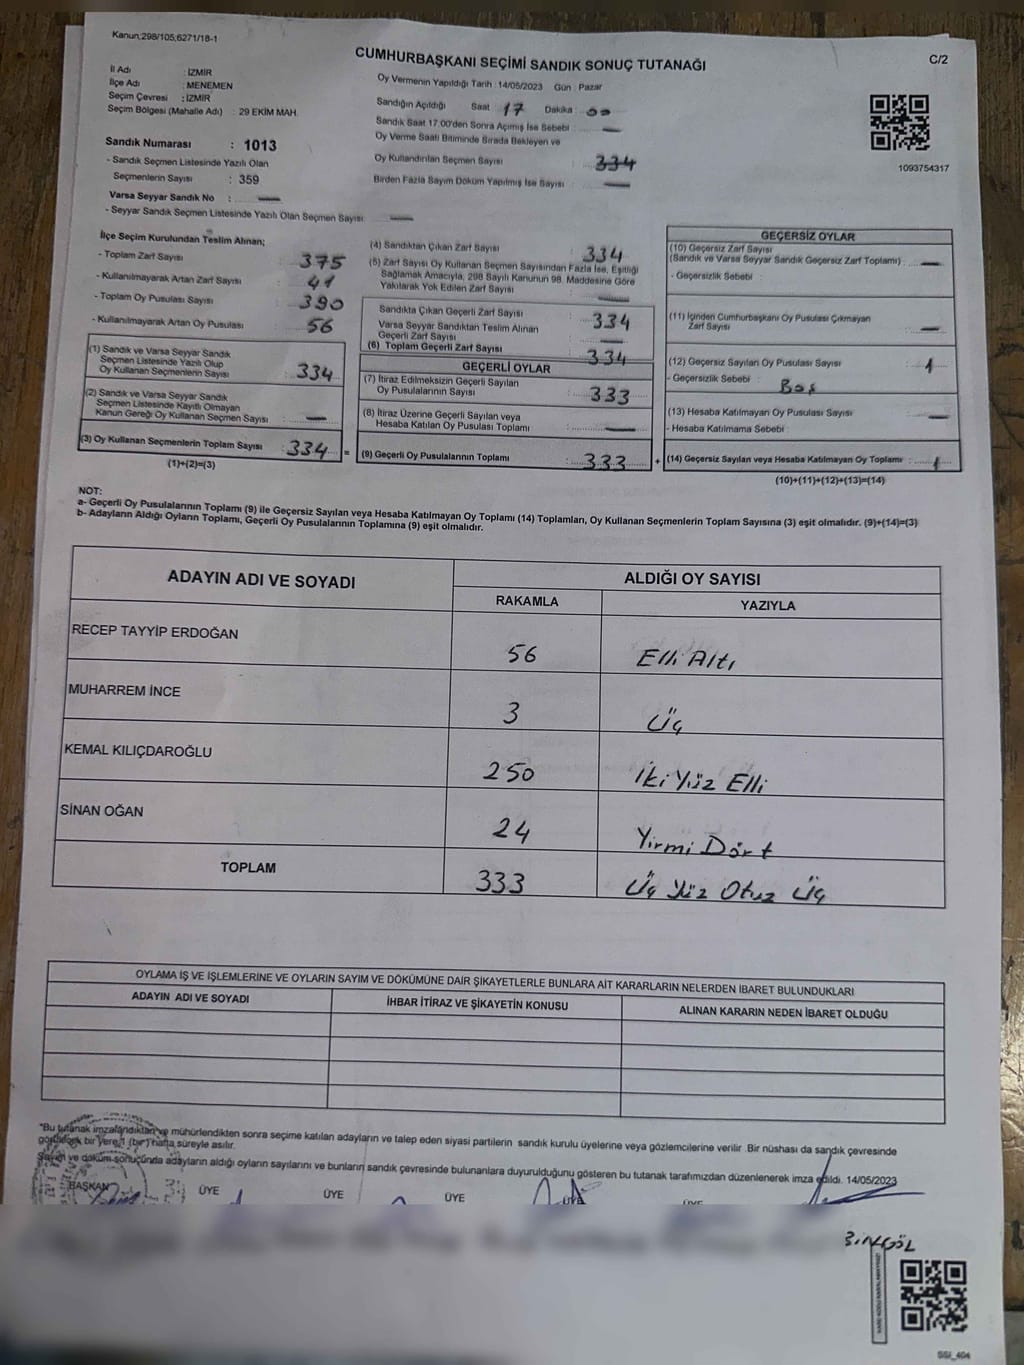 Kanun;298/105,6271/18-1
CUMHURBAŞKANI SEÇİMİ SANDIK SONUÇ TUTANAĞI
C/2
İl Adı : İZMİR
İlçe Adı : MENEMEN
Seçim Çevresi : İZMİR
Seçim Bölgesi (Mahalle Adı) : 29 EKİM MAH.
Oy Vermenin Yapıldığı Tarih : 14/05/2023 Gün : Pazar
Sandığın Açıldığı Saat 17 Dakika : 00
Sandık Saat 17.00'den Sonra Açılmış İse Sebebi : —
Oy Verme Saati Bitiminde Sırada Bekleyen ve
Oy Kullandırılan Seçmen Sayısı : 334
Birden Fazla Sayım Döküm Yapılmış İse Sayısı : —
1093754317
Sandık Numarası : 1013
- Sandık Seçmen Listesinde Yazılı Olan
Seçmenlerin Sayısı : 359
Varsa Seyyar Sandık No : —
- Seyyar Sandık Seçmen Listesinde Yazılı Olan Seçmen Sayısı : —
İlçe Seçim Kurulundan Teslim Alınan;
- Toplam Zarf Sayısı : 375
- Kullanılmayarak Artan Zarf Sayısı : 41
- Toplam Oy Pusulası Sayısı : 390
- Kullanılmayarak Artan Oy Pusulası : 56
(1) Sandık ve Varsa Seyyar Sandık
Seçmen Listesinde Yazılı Olup
Oy Kullanan Seçmenlerin Sayısı : 334
(2) Sandık ve Varsa Seyyar Sandık
Seçmen Listesinde Kayıtlı Olmayan
Kanun Gereği Oy Kullanan Seçmen Sayısı : —
(3) Oy Kullanan Seçmenlerin Toplam Sayısı : 334 =
(1)+(2)=(3)
(4) Sandıktan Çıkan Zarf Sayısı : 334
(5) Zarf Sayısı Oy Kullanan Seçmen Sayısından Fazla İse, Eşitliği
Sağlamak Amacıyla, 298 Sayılı Kanunun 98. Maddesine Göre
Yakılarak Yok Edilen Zarf Sayısı : —
Sandıkta Çıkan Geçerli Zarf Sayısı : 334
Varsa Seyyar Sandıktan Teslim Alınan
Geçerli Zarf Sayısı : —
(6) Toplam Geçerli Zarf Sayısı : 334
GEÇERLİ OYLAR
(7) İtiraz Edilmeksizin Geçerli Sayılan
Oy Pusulalarının Sayısı : 333
(8) İtiraz Üzerine Geçerli Sayılan veya
Hesaba Katılan Oy Pusulası Toplamı : —
(9) Geçerli Oy Pusulalarının Toplamı : 333 +
GEÇERSİZ OYLAR
(10) Geçersiz Zarf Sayısı
(Sandık ve Varsa Seyyar Sandık Geçersiz Zarf Toplamı) : —
- Geçersizlik Sebebi :
(11) İçinden Cumhurbaşkanı Oy Pusulası Çıkmayan
Zarf Sayısı : —
(12) Geçersiz Sayılan Oy Pusulası Sayısı : 1
- Geçersizlik Sebebi : Boş
(13) Hesaba Katılmayan Oy Pusulası Sayısı : —
- Hesaba Katılmama Sebebi :
(14) Geçersiz Sayılan veya Hesaba Katılmayan Oy Toplamı : 1
(10)+(11)+(12)+(13)=(14)
NOT:
a- Geçerli Oy Pusulalarının Toplamı (9) ile Geçersiz Sayılan veya Hesaba Katılmayan Oy Toplamı (14) Toplamları, Oy Kullanan Seçmenlerin Toplam Sayısına (3) eşit olmalıdır. (9)+(14)=(3)
b- Adayların Aldığı Oyların Toplamı, Geçerli Oy Pusulalarının Toplamına (9) eşit olmalıdır.
ADAYIN ADI VE SOYADI ALDIĞI OY SAYISI
RAKAMLA YAZIYLA
RECEP TAYYİP ERDOĞAN 56 Elli Altı
MUHARREM İNCE 3 Üç
KEMAL KILIÇDAROĞLU 250 İki Yüz Elli
SİNAN OĞAN 24 Yirmi Dört
TOPLAM 333 Üç Yüz Otuz Üç
OYLAMA İŞ VE İŞLEMLERİNE VE OYLARIN SAYIM VE DÖKÜMÜNE DAİR ŞİKAYETLERLE BUNLARA AİT KARARLARIN NELERDEN İBARET BULUNDUKLARI
ADAYIN ADI VE SOYADI İHBAR İTİRAZ VE ŞİKAYETİN KONUSU ALINAN KARARIN NEDEN İBARET OLDUĞU
"Bu tutanak imzalandıktan ve mühürlendikten sonra seçime katılan adayların ve talep eden siyasi partilerin sandık kurulu üyelerine veya gözlemcilerine verilir. Bir nüshası da sandık çevresinde
görülecek bir yere 1 (bir) hafta süreyle asılır.
Sayım ve döküm sonucunda adayların aldığı oyların sayılarını ve bunların sandık çevresinde bulunanlara duyurulduğunu gösteren bu tutanak tarafımızdan düzenlenerek imza edildi. 14/05/2023
BAŞKAN ÜYE ÜYE ÜYE ÜYE ÜYE
BİNGÖL
SSİ_404